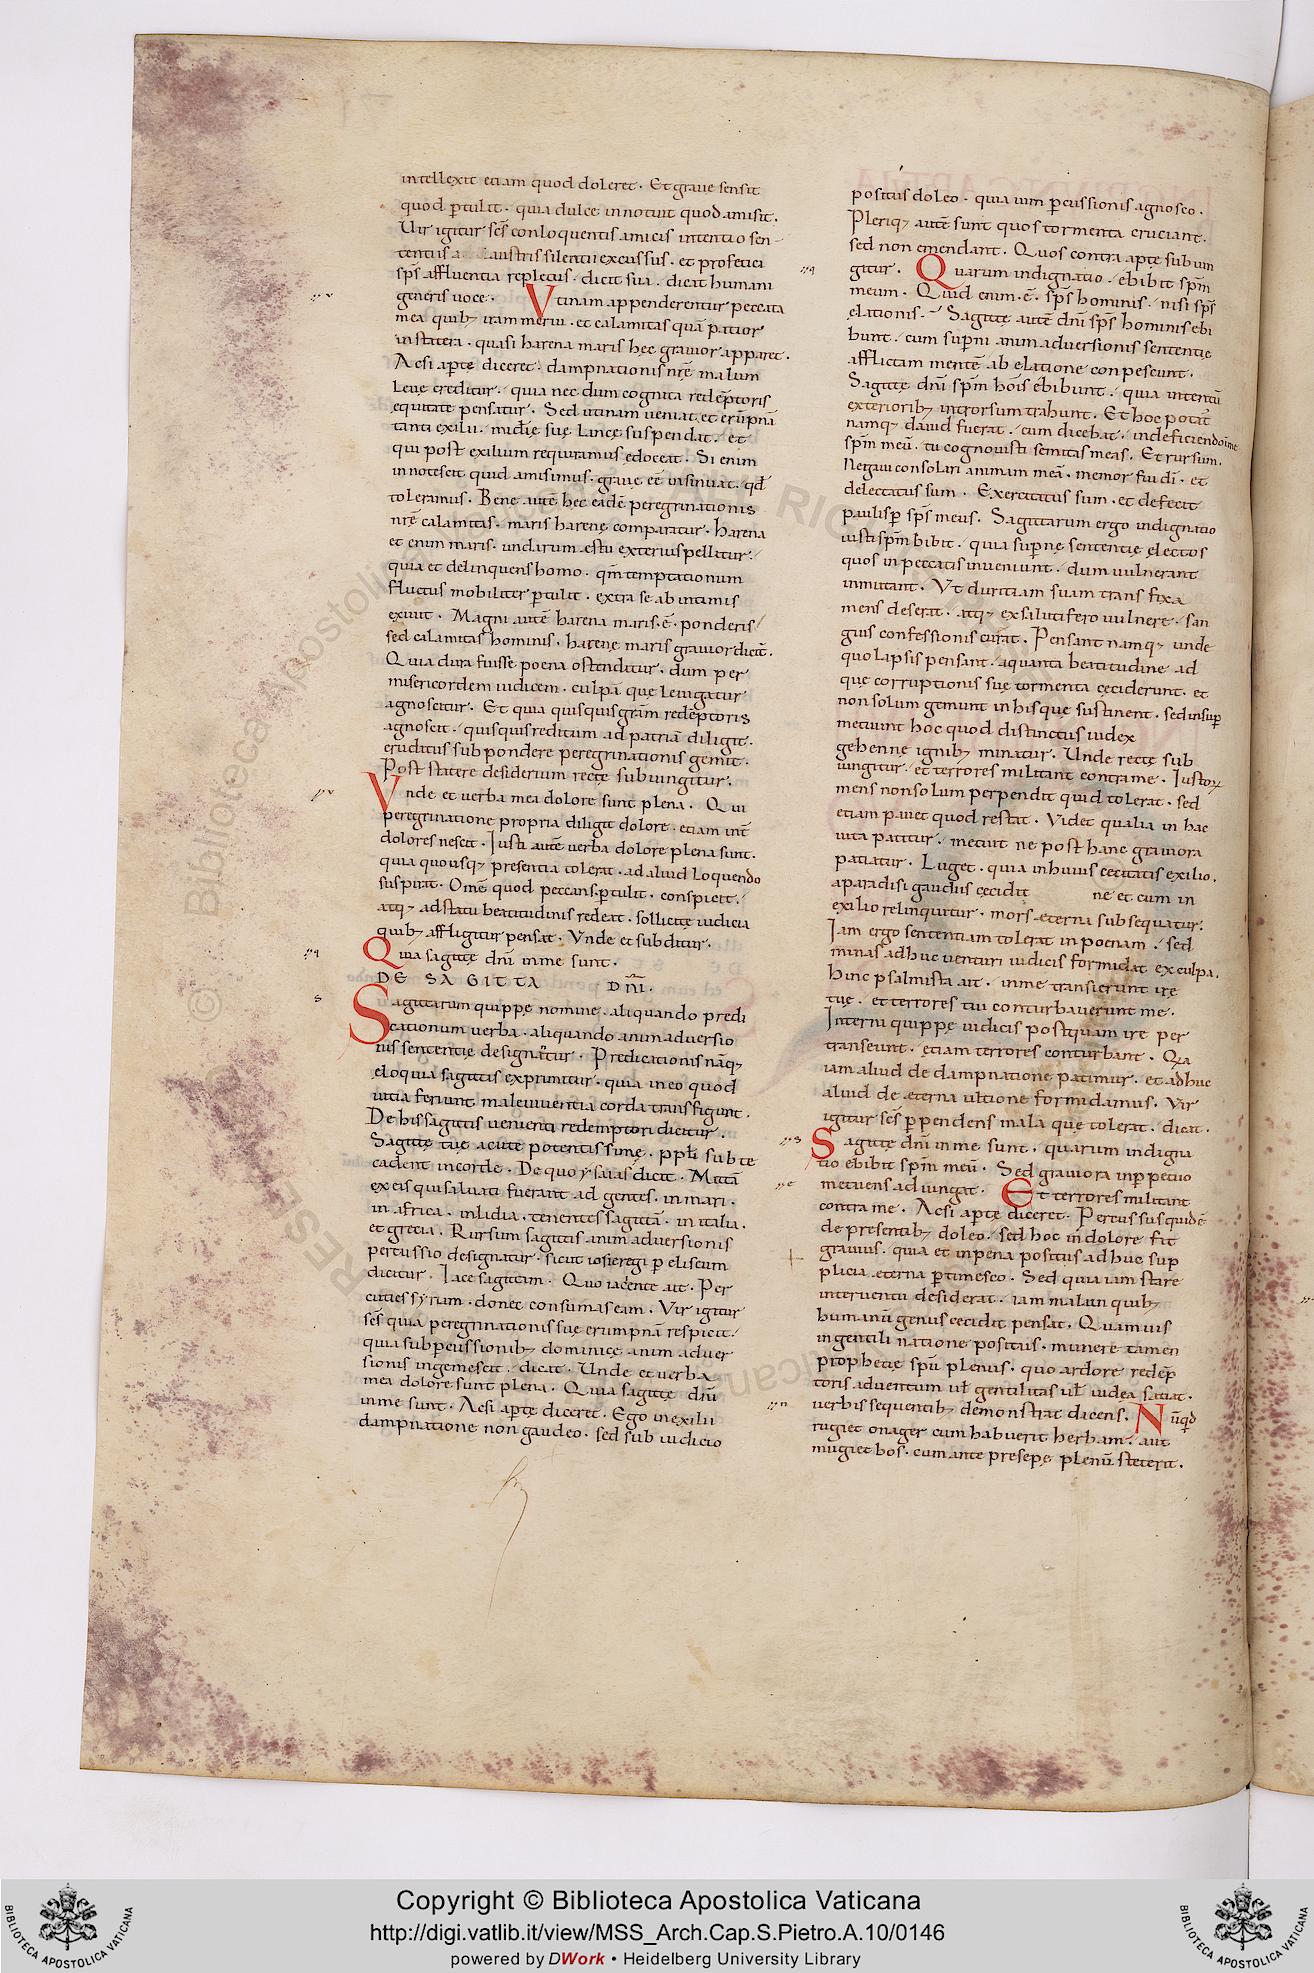 intellexit etiam quod doleret. Et graue sensit
quod ptulit. quia dulce innotuit quod amisit.
Uir igitur scs conloquentis amicis intentio sen-
tentiis a claustris silentii excussus. et profetici
sps affluentia repletus. dicit sua. dicat humani
generis uoce. Vtinam appenderentur peccata
mea quib; iram merui. et calamitas quā patior
in statera. quasi harena maris hęc grauior apparet.
Ac si aptę diceret. dampnationis nrę malum
leue creditur. quia nec dum cognita redēptoris
equitate pensatur. Sed utinam ueniat. et erūpnā
tanti exilii. midię suę lance suspendat. et
qui post exilium requiramus edoceat. Si enim
innotescit quid amisimus. graue eē insinuat. qd
toleramus. Bene autē hec eadē peregrinationis
nrę calamitas. maris harenę comparatur. Harena
et enim maris. undarum estu exterius pellitur.
quia et delinquens homo. qm temptationum
fluctus mobiliter ptulit. extra se ab intimis
exiuit. Magni autē harena maris. ē. ponderis
sed calamitas hominis. harenę maris grauior dicit.
Quia dura fuisse poena ostenditur. dum per
misericordem iudicem. culpā que leuigatur
agnoscitur. Et quia quisquis grām redēptoris
agnoscit. quisquis reditum ad patriā diligit.
eruditus sub pondere peregrinationis gemit.
Post staterę desiderium recte subiungitur.
Vnde et uerba mea dolore sunt plena. Qui
peregrinatione propria diligit dolore. etiam int
dolores nescit. Iusti autē uerba dolore plena sunt.
quia quousq; presentia tolerat. ad aliud loquendo
suspirat. Omē quod peccans ptulit. conspicit.
atq; ad statū beatitudinis redeat. sollicite iudicia
quib; affligitur pensat. Vnde et subditur.
Quia sagitte dnī in me sunt.
DE SAGITTA DNI.
Sagittarum quippe nomine. aliquando predi
cationum uerba. aliquando animaduersio
nis sententię designatur. Predicationis nāq;
eloquia sagittis exprimitur. quia in eo quod
uitia feriunt male uiuentia corda transfigunt.
De his sagittis uenienti redemptori dicitur.
Sagittę tuę acute potentissimę. ppli sub te
cadent in corde. De quo ysaias dicit. Mittā
ex eis qui saluati fuerant ad gentes. in mari.
in africa. in lidia. tenentes sagittā. in italia.
et grecia. Rursum sagittis animaduersionis
percussio designatur. sicut iosie regi p eliseum
dicitur. Iace sagittam. Quo iacente ait. Per
cuties syriam. donec consumas eam. Vir igitur
scs quia peregrinationis suę erumpnā respicit.
quia sub pcussionib; dominicę animaduer
sionis ingemescit. dicat. Unde et uerba
mea dolore sunt plena. Quia sagittę dnī
in me sunt. Ac si aptę diceret. Ego in exilii
dampnatione non gaudeo. sed sub iudicio
positus doleo. quia uim pcussionis agnosco.
Pleriq; autē sunt quos tormenta cruciant.
sed non emendant. Quos contra apte subiun
gitur. Quarum indignatio. ebibit spm
meum. Quid enim. ē. sps hominis. nisi sps
elationis. Sagittę autē dnī sps hominis ebi
bunt. cum supni animaduersionis sententię
afflictam mentē ab elatione conpescunt.
Sagittę dnī spm hois ebibunt. quia intentū
exteriorib; introrsum trahunt. Et hoc potat
namq; dauid fuerat. cum dicebat. in deficiendo in me
spm meū. tu cognouisti semitas meas. Et rursum.
Negaui consolari animam meā. memor fui di. et
delectatus sum. Exercitatus sum. et defecit
paulisp sps meus. Sagittarum ergo indignatio
iusti spm bibit. quia supnę sententię electos
quos in peccatis inueniunt. dum uulnerant
inmutant. Vt duritiam suam trans fixa
mens deserat. atq; ex salutifero uulnere. san
guis confessionis currat. Pensant namq; unde
quo lapsis pensant. a quanta beatitudine ad
que corruptionis suę tormenta ceciderunt. et
non solum gemunt in his que sustinent. sed insup
metiunt hoc quod distinctus iudex
gehenne ignib; minatur. Unde recte sub
iungitur. et terrores militant contra me. Iustoꝝ
mens non solum perpendit quid tolerat. sed
etiam pauet quod restat. Videt qualia in hac
uita patitur. metuit ne post hanc grauiora
patiatur. Luget. quia in huius cecitatis exilio.
a paradisi gaudiis cecidit ne et cum in
exilio relinquitur. mors ęterna subsequatur.
Iam ergo sententiam tolerat in poenam. sed
minas adhuc uenturi iudicis formidat ex culpa.
hinc psalmista ait. in me transierunt irę
tuę. et terrores tui conturbauerunt me.
Interni quippe iudicis postquam ire per
transeunt. etiam terrores conturbant. Qia
iam aliud de dampnatione patimur. et adhuc
aliud de ęterna ultione formidamus. Vir
igitur scs ppendens mala que tolerat. dicat.
Sagittę dnī in me sunt. quarum indigna
tio ebibit spm meū. Sed grauiora in ppetuo
metuens adiungat. Et terrores militant
contra me. Ac si apte diceret. Percussus quidē
de presentib; doleo. sed hoc in dolore fit
grauius. quia et in pena positus adhuc sup
plicia ęterna ptimesco. Sed quia iam stare
interuentu desiderat. iam malum quib;
humanū genus cecidit pensat. Quamuis
in gentili natione positus. munere tamen
prophetie spū plenus. quo ardore redēp
toris aduentum ul gentilitas ul iudea satiat.
uerbis sequentib; demonstrat dicens. Nūqd
rugiet onager cum habuerit herbam. aut
mugiet bos. cum ante presepe plenū steterit.
Copyright © Biblioteca Apostolica Vaticana
http://digi.vatlib.it/view/MSS_Arch.Cap.S.Pietro.A.10/0146
powered by DWork • Heidelberg University Library
BIBLIOTECA APOSTOLICA VATICANA
BIBLIOTECA APOSTOLICA VATICANA